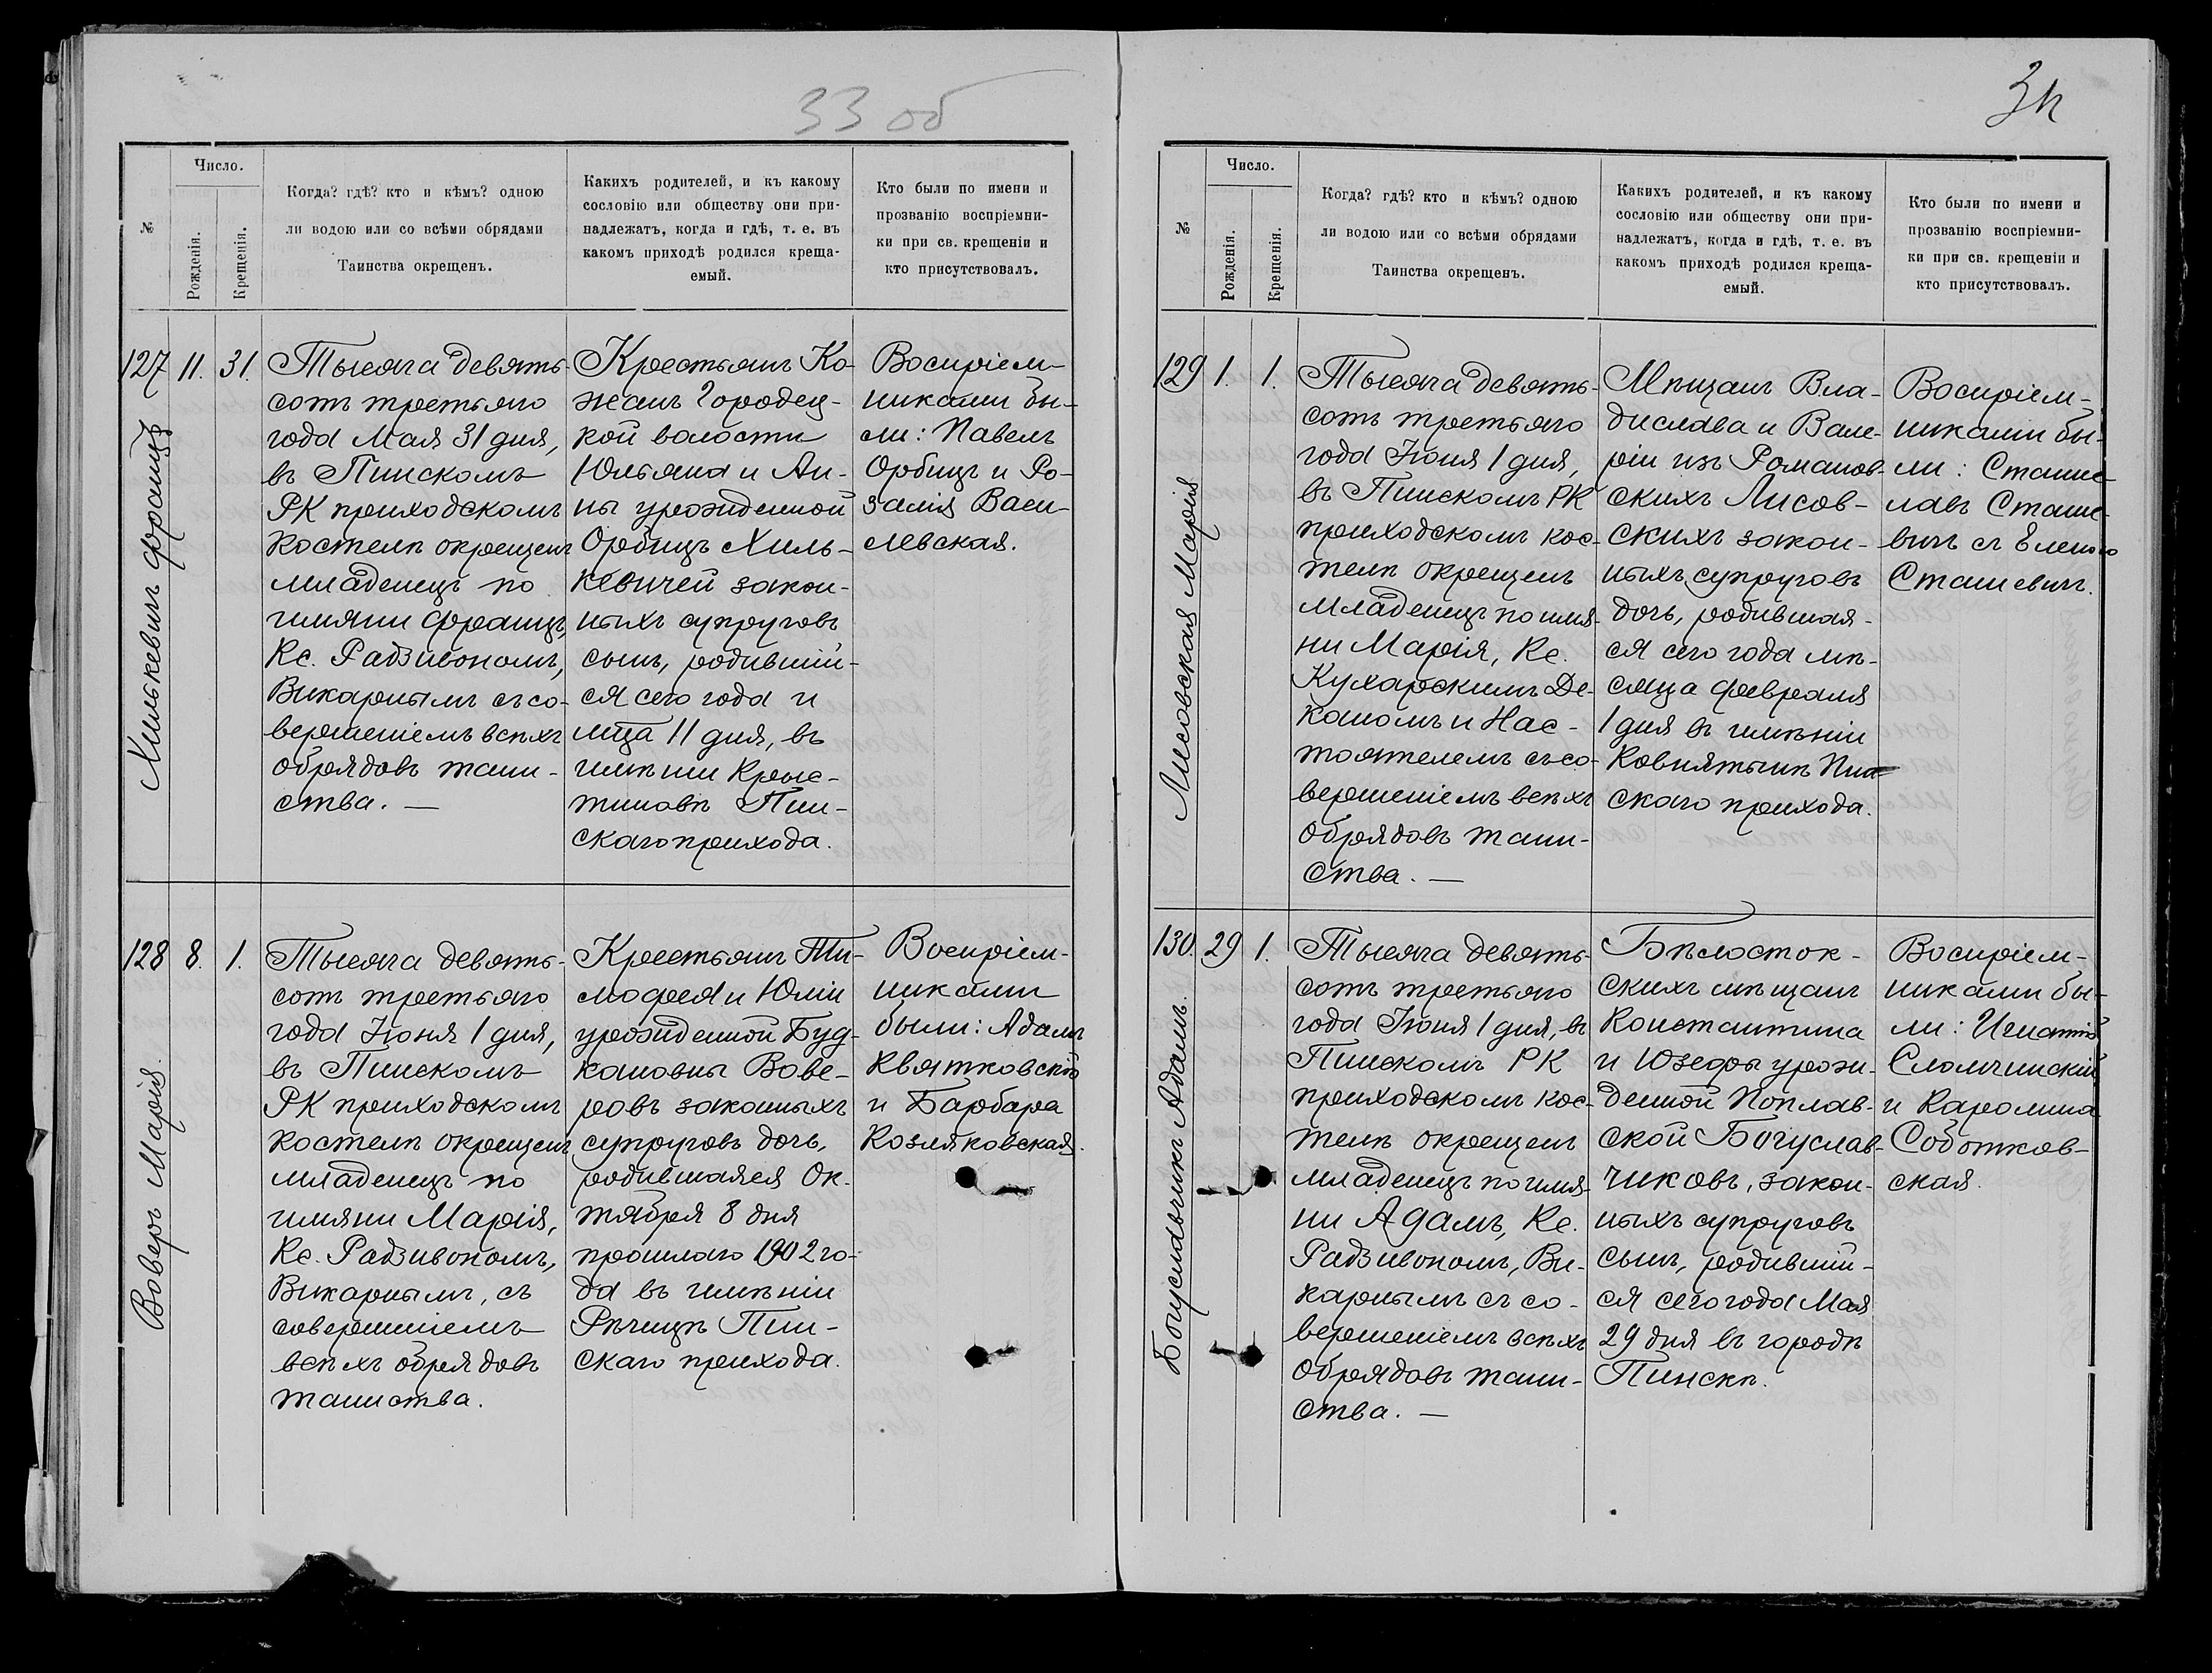 33 об
№
Число.
Рожденія.
Крещенія.
Когда? гдѣ? кто и кѣмъ? одною
ли водою или со всѣми обрядами
Таинства окрещенъ.
Какихъ родителей, и къ какому
сословію или обществу они при-
надлежатъ, когда и гдѣ, т. е. въ
какомъ приходѣ родился креща-
емый.
Кто были по имени и
прозванію воспріемни-
ки при св. крещеніи и
кто присутствовалъ.
127
Хилькевичъ Францъ
11.
31.
Тысяча девять-
сотъ третьяго
года Мая 31 дня,
въ Пинскомъ
РК приходскомъ
костелѣ окрещенъ
младенецъ по
имяни Францъ,
Кс. Радзивономъ,
Викарнымъ съ со-
вершеніемъ всѣхъ
обрядовъ таин-
ства. —
Крестьянъ Ко-
жанъ Городец-
кой волости
Юльяна и Ан-
ны урожденной
Орбицъ Хиль-
кевичей закон-
ныхъ супруговъ
сынъ, родившій-
ся сего года и
мца 11 дня, въ
имѣніи Крыс-
тиновѣ Пин-
скаго прихода.
Воспріем-
никами бы-
ли: Павелъ
Орбицъ и Ро-
залія Васи-
левская.
128
Воверъ Марія.
8.
1.
Тысяча девять-
сотъ третьяго
года Іюня 1 дня,
въ Пинскомъ
РК приходскомъ
костелѣ окрещенъ
младенецъ по
имяни Марія,
Кс. Радзивономъ,
Викарнымъ, съ
совершеніемъ
всѣхъ обрядовъ
таинства.
Крестьянъ Ти-
мофея и Юліи
урожденной Буд-
кановны Вове-
ровъ законныхъ
супруговъ дочь,
родившаяся Ок-
тября 8 дня
прошлаго 1902 го-
да въ имѣніи
Рѣчицѣ Пин-
скаго прихода.
Воспріем-
никами
были: Адамъ
Квятковскій
и Барбара
Козляковская.
34
№
Число.
Рожденія.
Крещенія.
Когда? гдѣ? кто и кѣмъ? одною
ли водою или со всѣми обрядами
Таинства окрещенъ.
Какихъ родителей, и къ какому
сословію или обществу они при-
надлежатъ, когда и гдѣ, т. е. въ
какомъ приходѣ родился креща-
емый.
Кто были по имени и
прозванію воспріемни-
ки при св. крещеніи и
кто присутствовалъ.
129
Лисовская Марія
1.
1.
Тысяча девять-
сотъ третьяго
года Іюня 1 дня,
въ Пинскомъ РК
приходскомъ кос-
телѣ окрещенъ
младенецъ по имя-
ни Марія, Кс.
Кухарскимъ Де-
каномъ и Нас-
тоятелемъ съ со-
вершеніемъ всѣхъ
обрядовъ таин-
ства. —
Мѣщанъ Вла-
дислава и Вале-
ріи изъ Романов-
скихъ Лисов-
скихъ закон-
ныхъ супруговъ
дочь, родившая-
ся сего года мѣ-
сяца Февраля
1 дня въ имѣніи
Ковнятынѣ Пин-
скаго прихода.
Воспріем-
никами бы-
ли: Станис-
лавъ Сташе-
вичъ съ Еленою
Сташевичъ.
130.
Богуславчикъ Адамъ.
29
1.
Тысяча девять-
сотъ третьяго
года Іюня 1 дня, въ
Пинскомъ РК
приходскомъ кос-
телѣ окрещенъ
младенецъ по имя-
ни Адамъ, Кс.
Радзивономъ, Ви-
карнымъ съ со-
вершеніемъ всѣхъ
обрядовъ таин-
ства. —
Бѣлосток-
скихъ мѣщанъ
Константина
и Юзефы урож-
денной Поплав-
ской Богуслав-
чиковъ, закон-
ныхъ супруговъ
сынъ, родившій-
ся сего года Мая
29 дня въ городѣ
Пинскѣ.
Воспріем-
никами бы-
ли: Игнатій
Сломчинскій
и Каролина
Соботков-
ская.